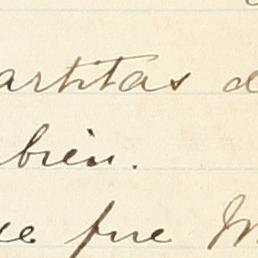 artitas d
bien.
ue fue M